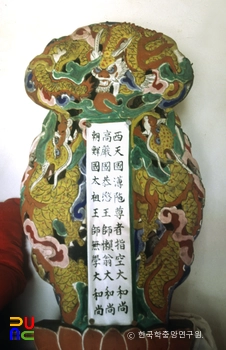 西天國薄陁尊者指空大和尚
高麗國恭愍王師懶翁大和尚
朝鮮國太祖王師無學大和尚
© 한국학중앙연구원